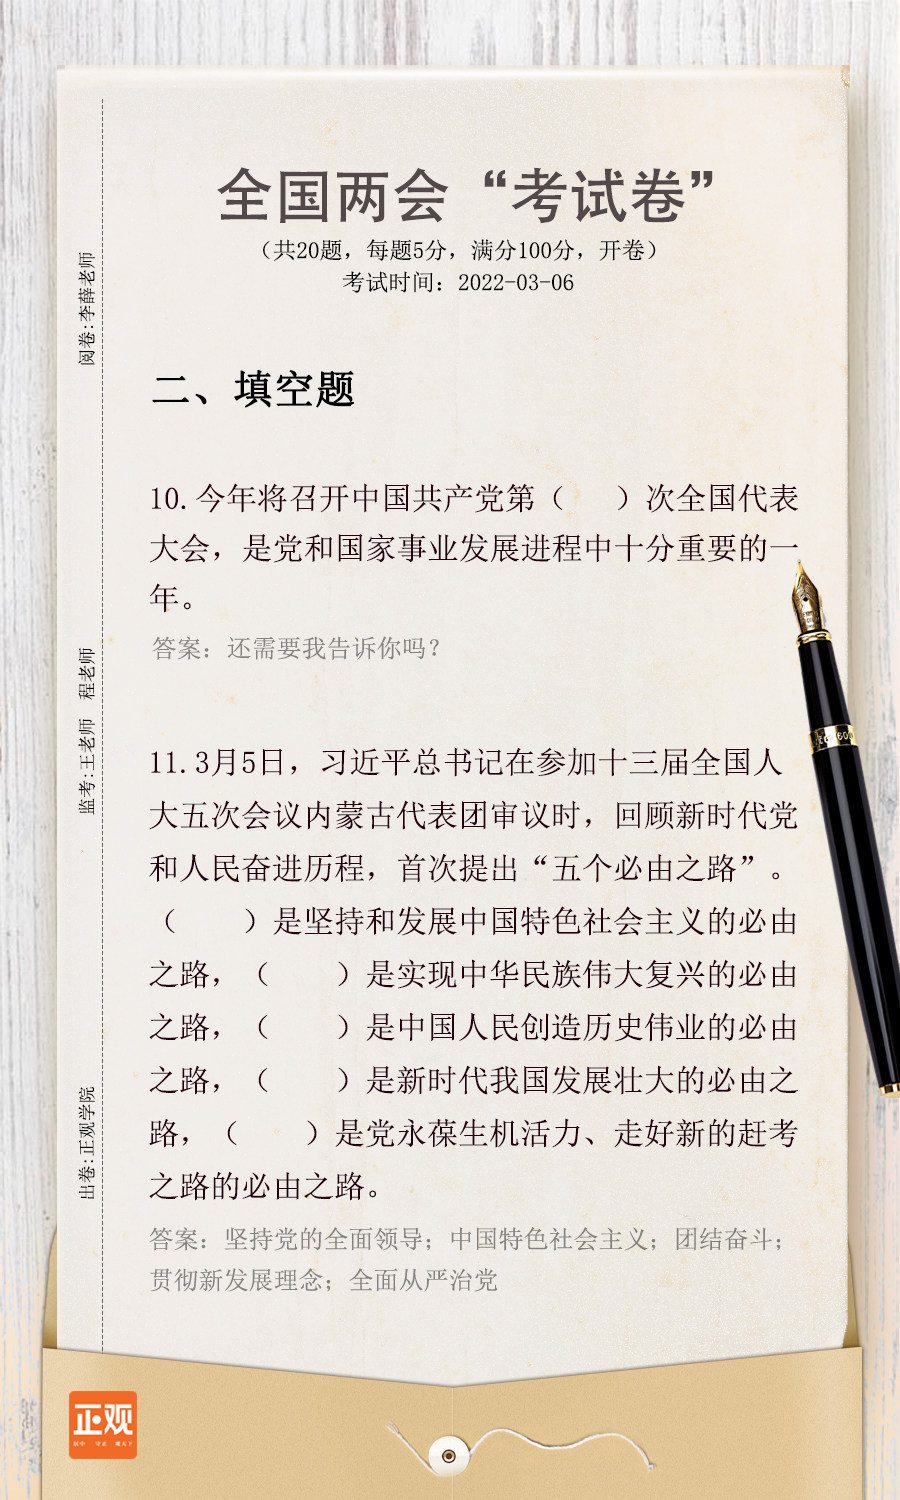 全国两会“考试卷”
（共20题，每题5分，满分100分，开卷）
考试时间：2022-03-06
阅卷:李薛老师
监考:王老师 程老师
出卷:正观学院
二、填空题
10.今年将召开中国共产党第（ ）次全国代表
大会，是党和国家事业发展进程中十分重要的一
年。
答案：还需要我告诉你吗？
11.3月5日，习近平总书记在参加十三届全国人
大五次会议内蒙古代表团审议时，回顾新时代党
和人民奋进历程，首次提出“五个必由之路”。
（ ）是坚持和发展中国特色社会主义的必由
之路，（ ）是实现中华民族伟大复兴的必由
之路，（ ）是中国人民创造历史伟业的必由
之路，（ ）是新时代我国发展壮大的必由之
路，（ ）是党永葆生机活力、走好新的赶考
之路的必由之路。
答案：坚持党的全面领导；中国特色社会主义；团结奋斗；
贯彻新发展理念；全面从严治党
正观